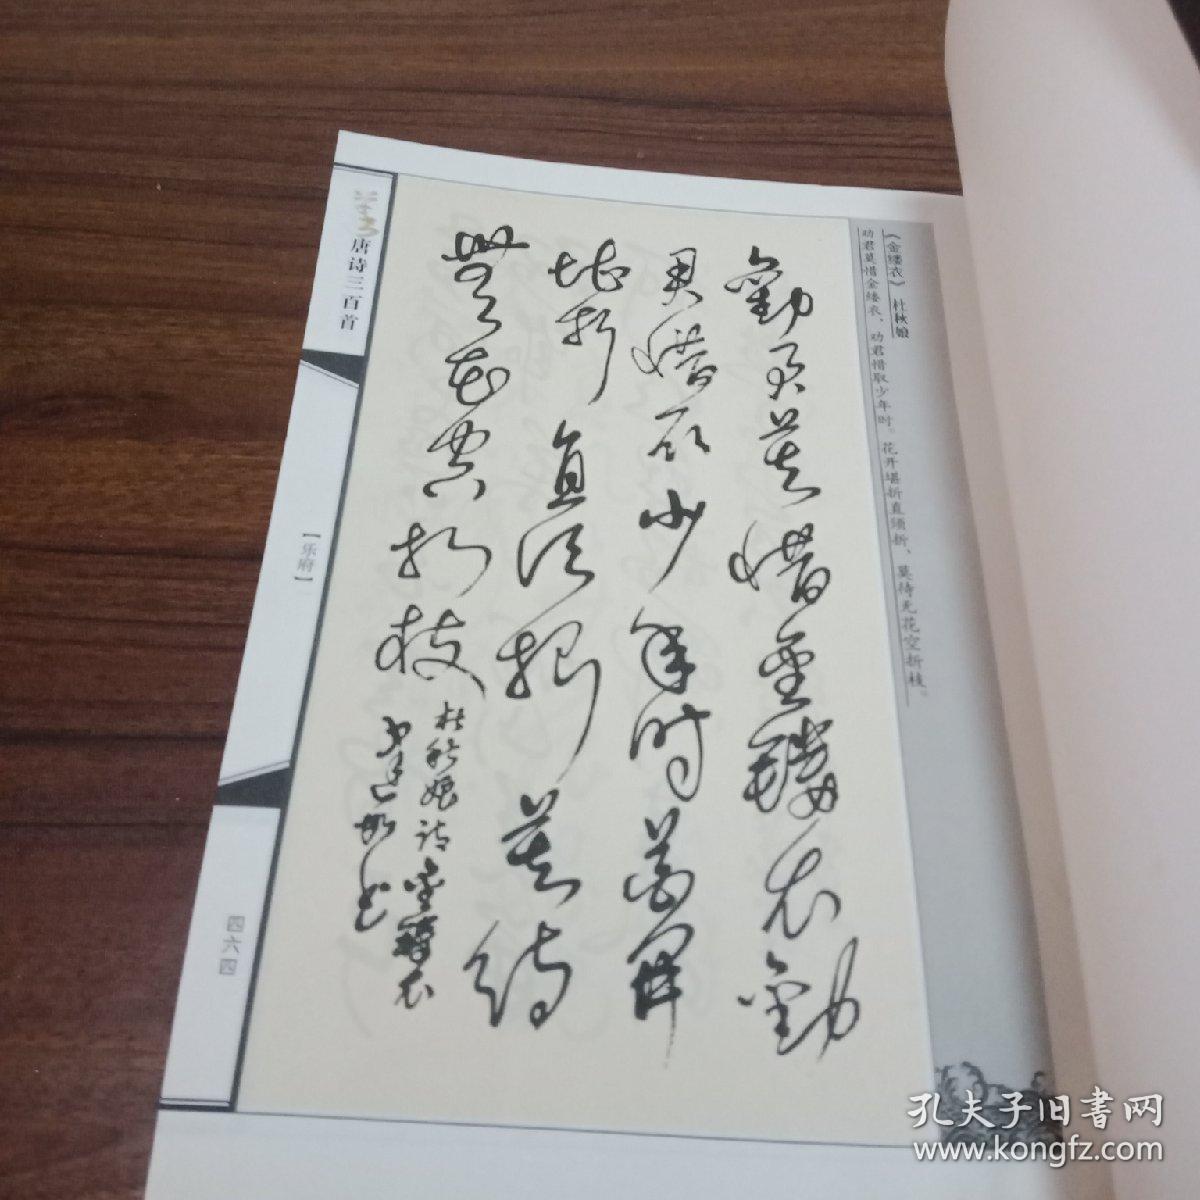 《金缕衣》 杜秋娘
劝君莫惜金缕衣，劝君惜取少年时。花开堪折直须折，莫待无花空折枝。
勸君莫惜金縷衣勸
君惜取少年时花開
堪折直須折莫待
無花空折枝
杜秋娘詩金縷衣
草书唐诗三百首
【乐府】
四六四
孔夫子旧书网
www.kongfz.com